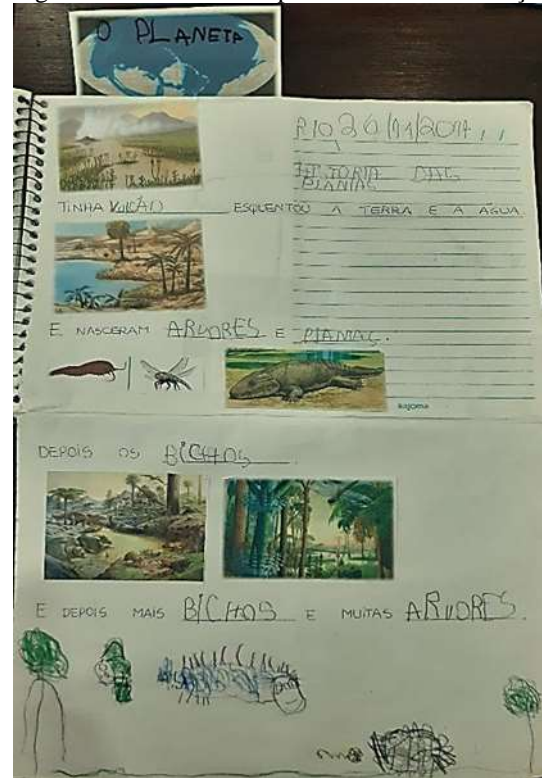 O PLANETA
RIO 26/11/2014
HISTORIA DAS
PLANTAS
TINHA VULCÃO ESQUENTOU A TERRA E A ÁGUA
E NASCERAM ARVORES E PLANTAS.
DEPOIS OS BICHOS
E DEPOIS MAIS BICHOS E MUITAS ARVORES.